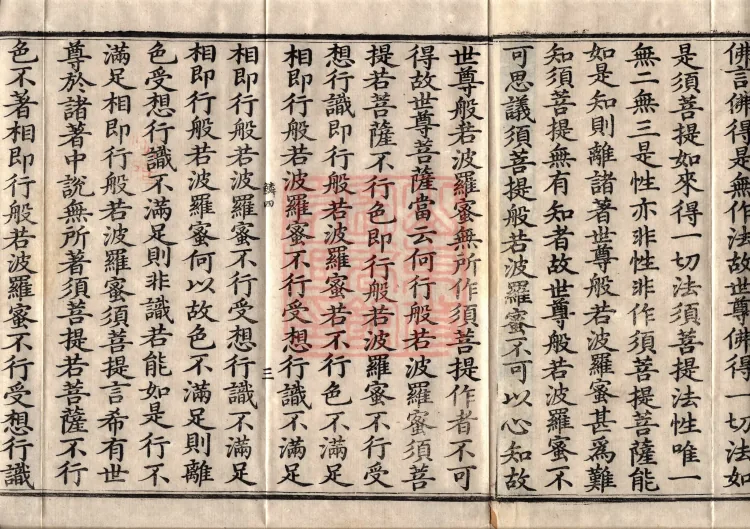 佛言佛得是無作法故世尊佛得一切法如
是須菩提如來得一切法須菩提法性唯一
無二無三是性亦非性非作須菩提菩薩能
如是知則離諸著世尊般若波羅蜜甚為難
知須菩提無有知者故世尊般若波羅蜜不
可思議須菩提般若波羅蜜不可以心知故
世尊般若波羅蜜無所作須菩提作者不可
得故世尊菩薩當云何行般若波羅蜜須菩
提若菩薩不行色即行般若波羅蜜不行受
想行識即行般若波羅蜜若不行色不滿足
相即行般若波羅蜜不行受想行識不滿足
鱗四 三
相即行般若波羅蜜不行受想行識不滿足
相即行般若波羅蜜何以故色不滿足則離
色受想行識不滿足則非識若能如是行不
滿足相即行般若波羅蜜須菩提言希有世
尊於諸著中說無所著須菩提若菩薩不行
色不著相即行般若波羅蜜不行受想行識